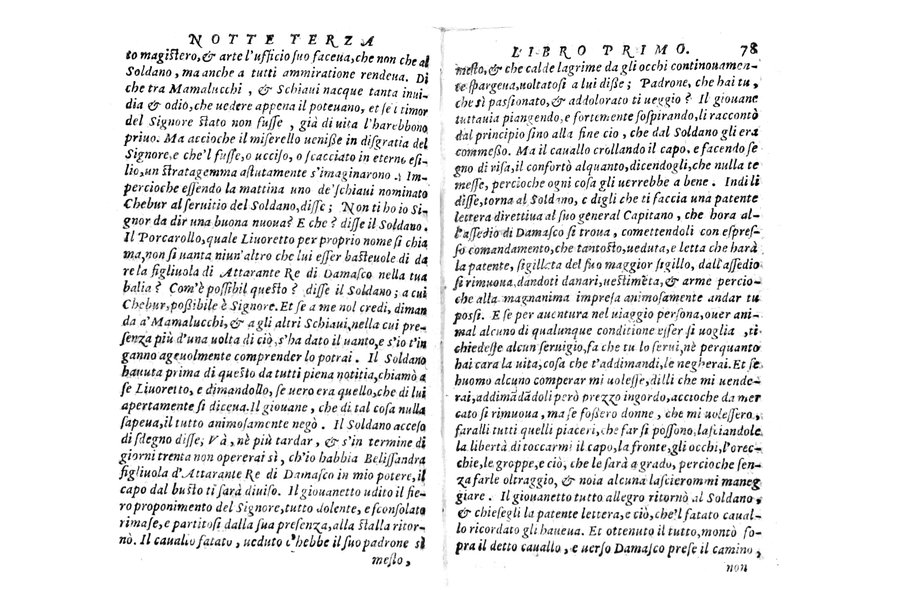 NOTTE TERZA
to magiſtero, & arte l'ufficio ſuo faceua, che non che al
Soldano, ma anche a tutti ammiratione rendeua. Di
che tra Mamalucchi, & Schiaui nacque tanta inui-
dia & odio, che uedere appena il poteuano, et ſe'l timor
del Signore ſtato non fuſſe, già di uita l'harebbono
priuo. Ma accioche il miſerello ueniſſe in diſgratia del
Signore, e che'l fuſſe, o ucciſo, o ſcacciato in eterno eſi-
lio, un ſtratagemma aſtutamente s'imaginarono. Im-
percioche eſſendo la mattina uno de' ſchiaui nominato
Chebur al ſeruitio del Soldano, diſſe; Non ti ho io Si-
gnor da dir una buona nuoua? E che? diſſe il Soldano.
Il Porcarollo, quale Liuoretto per proprio nome ſi chia
ma, non ſi uanta niun'altro che lui eſſer baſteuole di da
re la figliuola di Attarante Re di Damaſco nella tua
balia? Com'è poſſibil queſto? diſſe il Soldano; a cui
Chebur, poßibile è Signore. Et ſe a me nol credi, diman
da a' Mamalucchi, & a gli altri Schiaui, nella cui pre-
ſenza più d'una uolta di ciò, s'ha dato il uanto, e s'io t'in
ganno ageuolmente comprender lo potrai. Il Soldano
hauuta prima di queſto da tutti piena notitia, chiamò a
ſe Liuoretto, e dimandollo, ſe uero era quello, che di lui
apertamente ſi diceua. Il giouane, che di tal coſa nulla
ſapeua, il tutto animoſamente negò. Il Soldano acceſo
di ſdegno diſſe; Và, nè più tardar, & s'in termine di
giorni trenta non opererai sì, ch'io habbia Beliſſandra
figliuola d'Attarante Re di Damaſco in mio potere, il
capo dal buſto ti ſarà diuiſo. Il giouanetto udito il fie-
ro proponimento del Signore, tutto dolente, e ſconſolato
rimaſe, e partitoſi dalla ſua preſenza, alla ſtalla ritor-
nò. Il cauallo fatato, ueduto c'hebbe il ſuo padrone sì
meſto,
LIBRO PRIMO. 78
meſto, & che calde lagrime da gli occhi continouamen-
te ſpargeua, uoltatoſi a lui diße; Padrone, che hai tu,
che sì paſſionato, & addolorato ti ueggio? Il giouane
tuttauia piangendo, e fortemente ſoſpirando, li raccontò
dal principio ſino alla fine cio, che dal Soldano gli era
commeßo. Ma il cauallo crollando il capo, e facendo ſe
gno di riſa, il confortò alquanto, dicendogli, che nulla te
meſſe, percioche ogni coſa gli uerrebbe a bene. Indi li
diſſe, torna al Soldano, e digli che ti faccia una patente
lettera direttiua al ſuo general Capitano, che hora al-
l'aſſedio di Damaſco ſi troua, comettendoli con eſpreſ-
ſo comandamento, che tantoſto, ueduta, e letta che harà
la patente, ſigillata del ſuo maggior ſigillo, dall'aſſedio
ſi rimoua, dandoti danari, ueſtimẽta, & arme percio-
che alla magnanima impreſa animoſamente andar tu
poſſi. E ſe per auentura nel uiaggio perſona, ouer ani-
mal alcuno di qualunque conditione eſſer ſi uoglia, ti
chiedeſſe alcun ſeruigio, fa che tu lo ſerui, nè perquanto
hai cara la uita, coſa che t'addimandi, le negherai. Et ſe
huomo alcuno comperar mi uoleſſe, dilli che mi uende-
rai, addimãdãdoli però prezzo ingordo, accioche da mer
cato ſi rimuoua, ma ſe foßero donne, che mi uoleſſero,
faralli tutti quelli piaceri, che far ſi poſſono, laſciandole
la libertà di toccarmi il capo, la fronte, gli occhi, l'orec-
chie, le groppe, e ciò, che le ſarà a grado, percioche ſen-
za farle oltraggio, & noia alcuna laſcierommi maneg
giare. Il giouanetto tutto allegro ritornò al Soldano,
& chieſegli la patente lettera, e ciò, che'l fatato caual-
lo ricordato gli haueua. Et ottenuto il tutto, montò ſo-
pra il detto cauallo, e uerſo Damaſco preſe il camino,
non